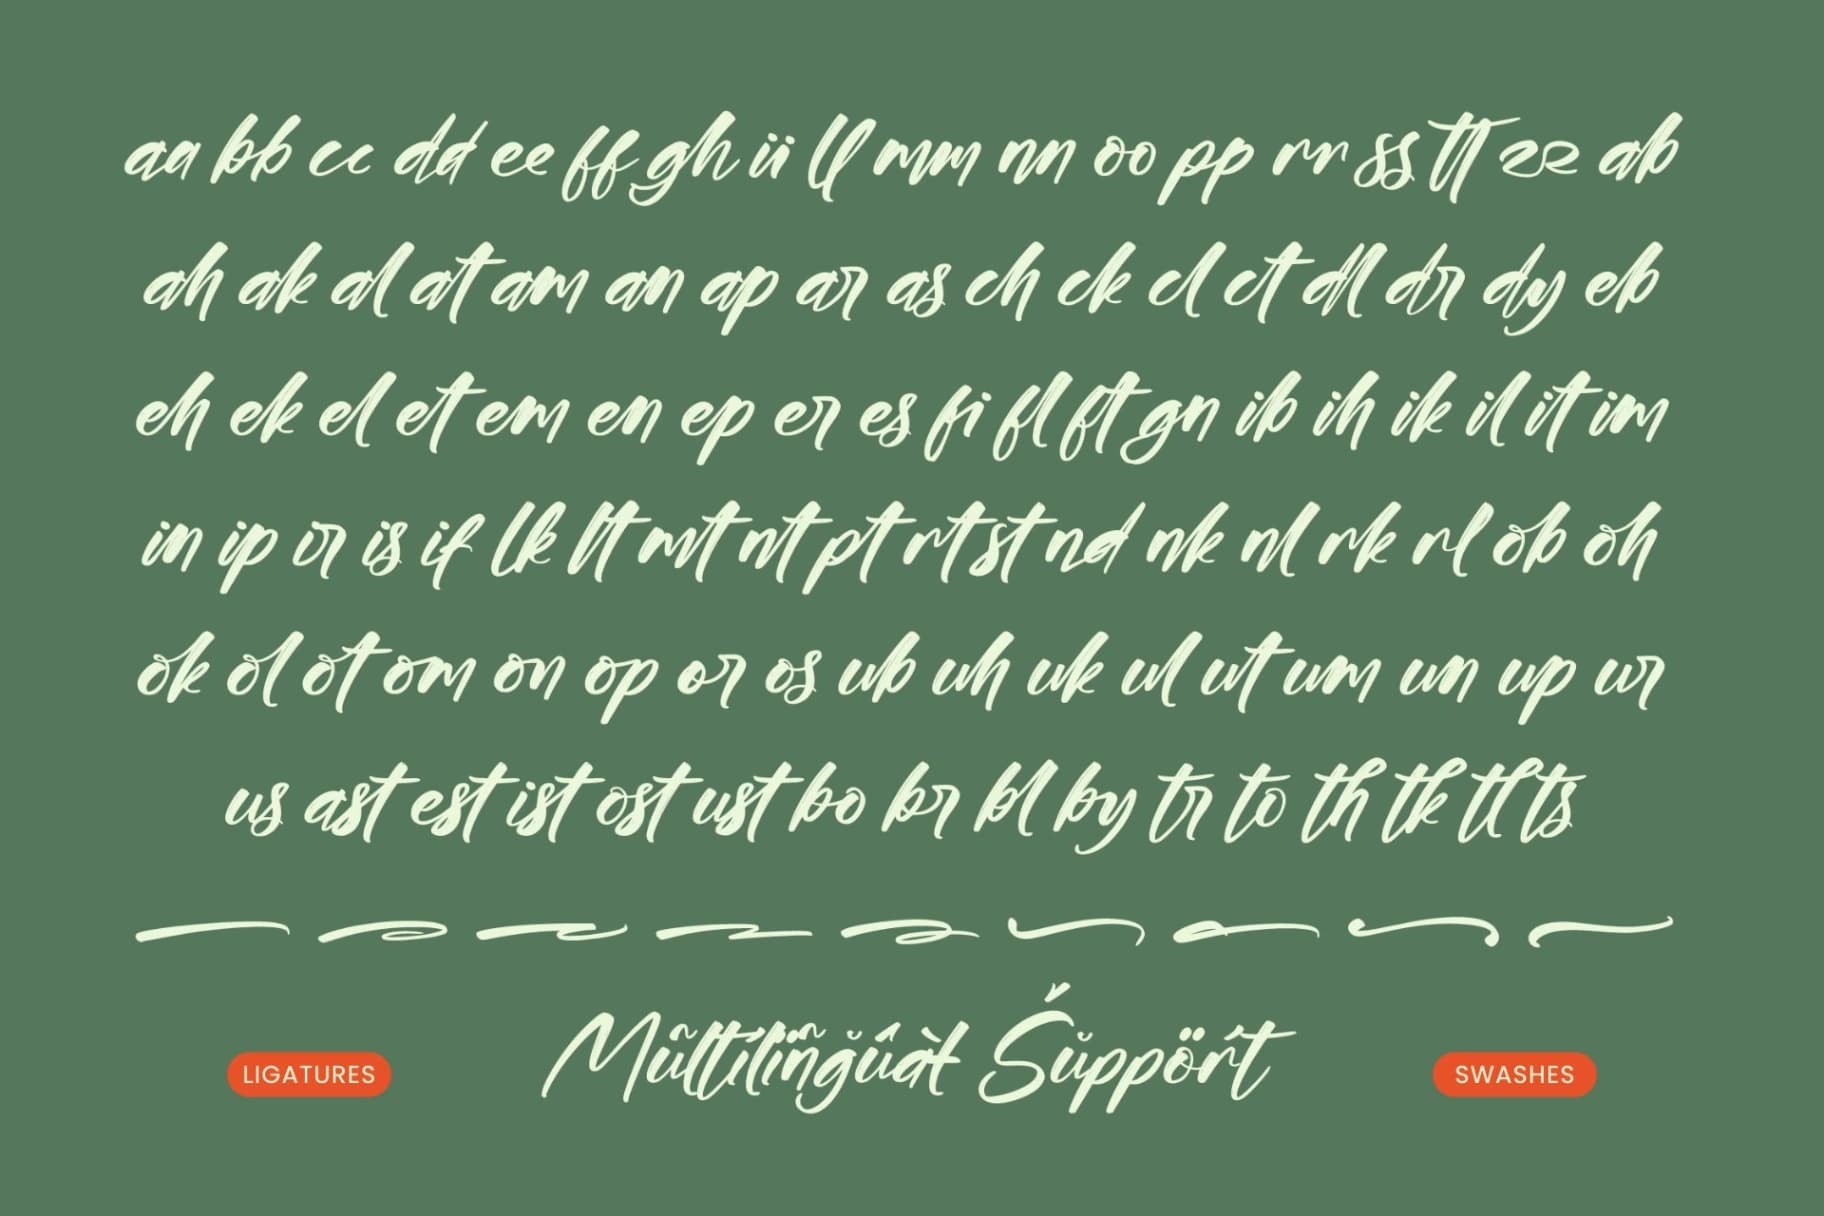 aa bb cc dd ee ff gh ii ll mm nn oo pp rr ss tt zz ab
ah ak al at am an ap ar as ch ck cl ct dl dr dy eb
eh ek el et em en ep er es fi fl ft gn ib ih ik il it im
in ip ir is if lk lt mt nt pt rt st nd nk nl rk rl ob oh
ok ol ot om on op or os ub uh uk ul ut um un up ur
us ast est ist ost ust bo br bl by tr to th tk tl ts
Mũltílïñğûàt Śŭppöŕt
LIGATURES
SWASHES